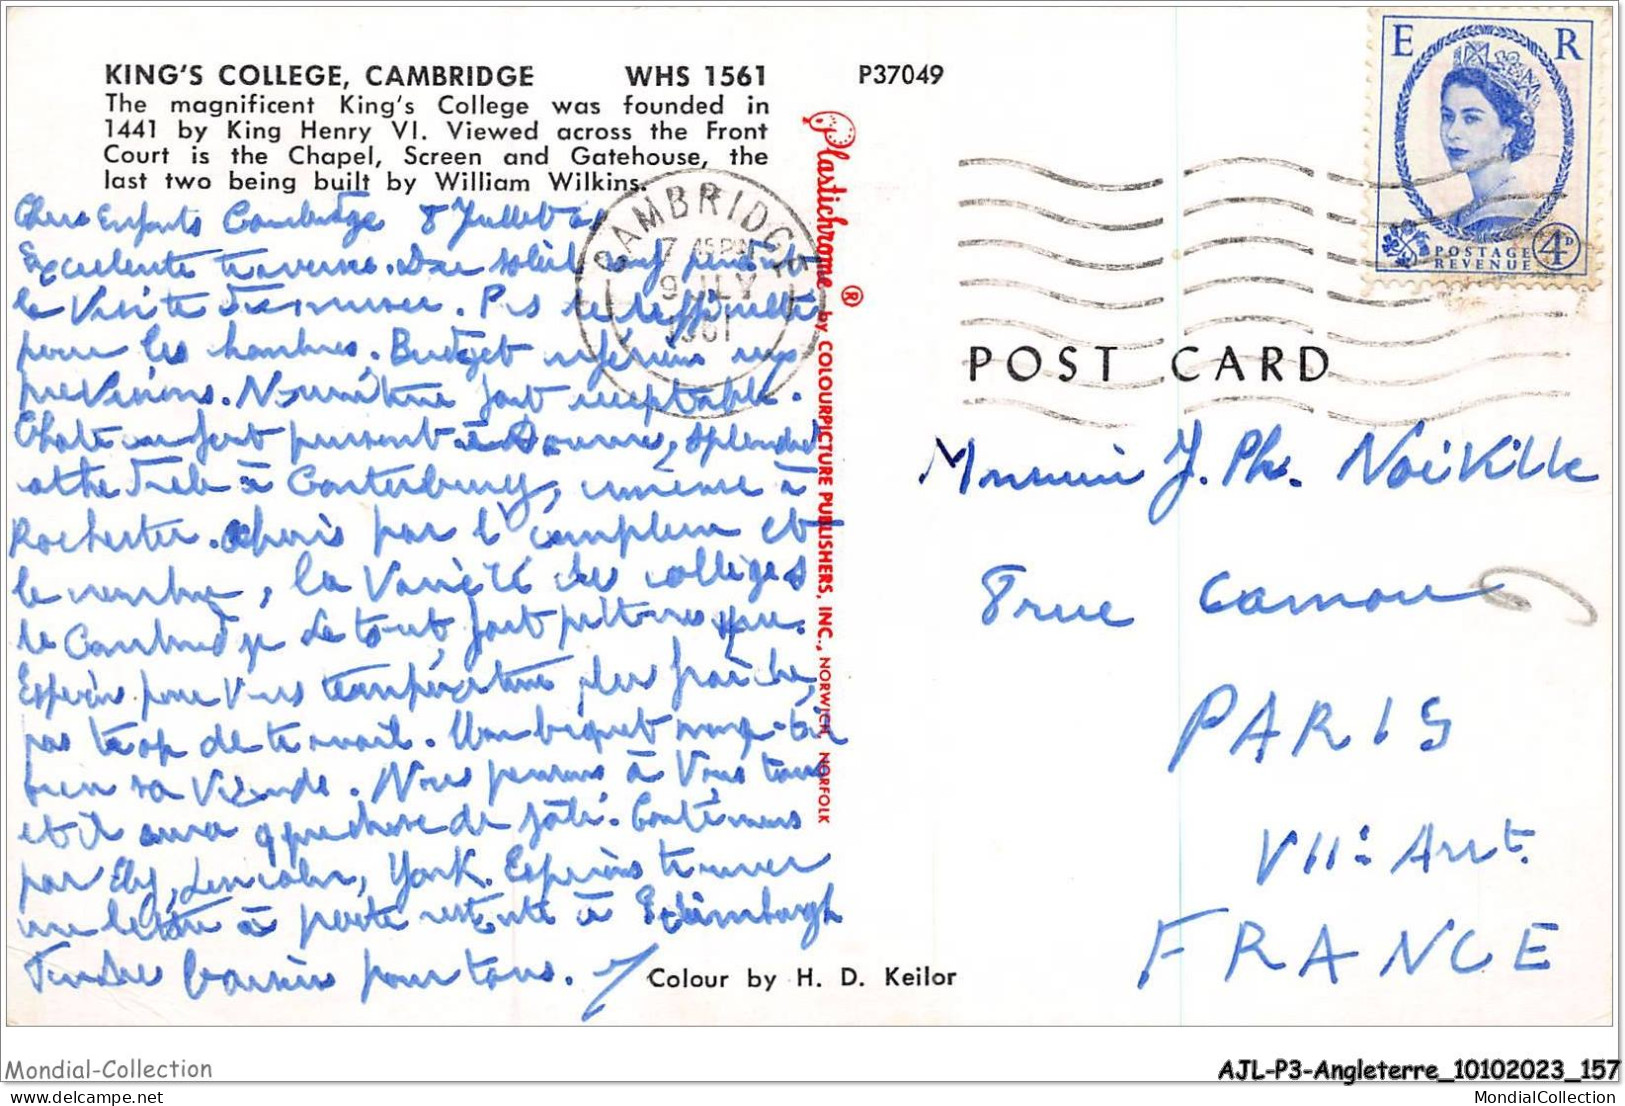 KING'S COLLEGE, CAMBRIDGE WHS 1561 P37049
The magnificent King's College was founded in
1441 by King Henry VI. Viewed across the Front
Court is the Chapel, Screen and Gatehouse, the
last two being built by William Wilkins.
Chers Enfants Cambridge 8 Juillet
Excellente traversée. soleil sauf pendant
la visite du musée. Pas de
pour les chambres. Budget inférieur aux
prévisions. Nourriture fort acceptable.
Château fort puissant à Douvres, splendide
cathédrale à Canterbury, à
Rochester. par l'ampleur et
le nombre, la variété des collèges
de Cambridge le tout fort pittoresque.
Espérons pour vous température plus fraîche,
pas trop de travail. Mon biquet mange-t-il
bien sa viande. Nous pensons à vous tous
et il aura quelque chose de gâté. Continuons
par Ely, Lincoln, York. Espérons trouver
une lettre à poste restante à Edimburgh
Tendres baisers pour tous.
CAMBRIDGE
7 45 PM
9 JLY
1961
Plastichrome ® by COLOURPICTURE PUBLISHERS, INC., NORWICH NORFOLK
Colour by H. D. Keilor
E R
POSTAGE
REVENUE
4D
POST CARD
Monsieur J. Ph. Noiville
8 rue Camou
PARIS
VIIe Arrt.
FRANCE
Mondial-Collection
AJL-P3-Angleterre_10102023_157
MondialCollection